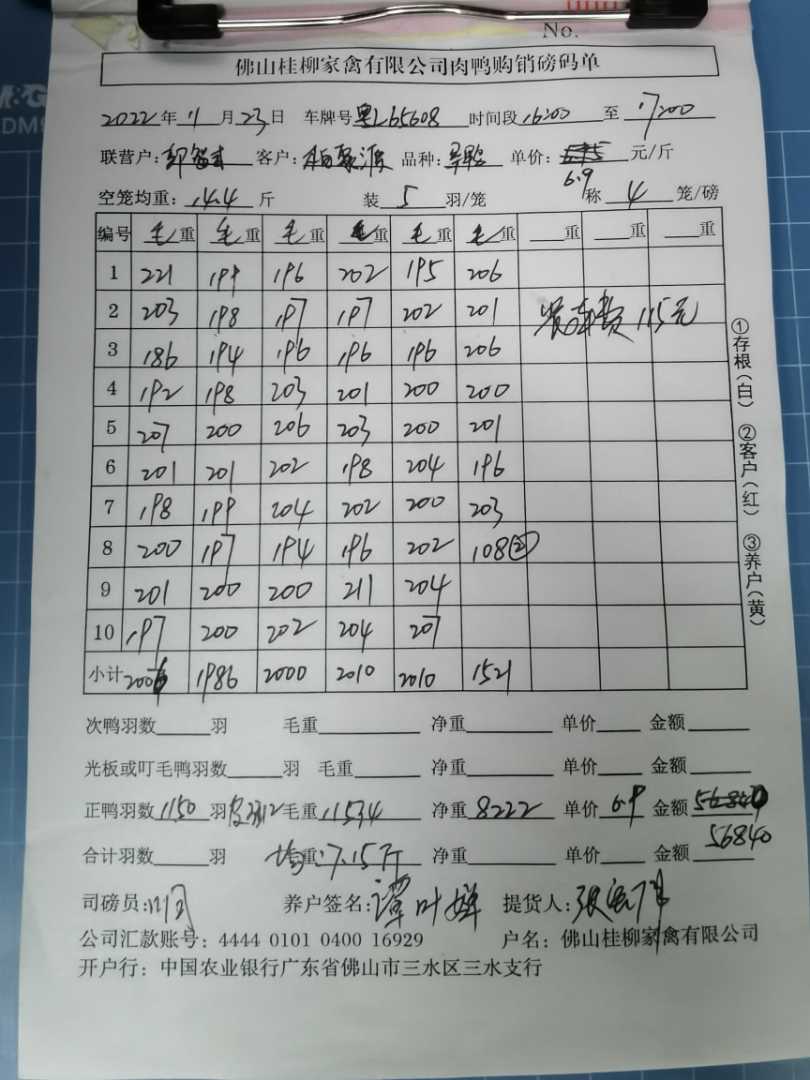 No.
佛山桂柳家禽有限公司肉鸭购销磅码单
2022年11月23日 车牌号粤L65608 时间段16:00至17:00
联营户: 客户: 品种: 单价: 元/斤
6.9
空笼均重:14.4斤 装5羽/笼 称4笼/磅
编号 毛重 毛重 毛重 毛重 毛重 毛重 重 重 重
1 221 199 196 202 195 206
2 203 198 197 197 202 201 装车费 115元
3 186 194 196 196 196 206
4 192 198 203 201 200 200
5 207 200 206 203 200 201
6 201 201 202 198 204 196
7 198 199 204 202 200 203
8 200 197 194 196 202 108②
9 201 200 200 211 204
10 197 200 202 204 207
小计 2006 1986 2000 2010 2010 1521
①存根(白) ②客户(红) ③养户(黄)
次鸭羽数 羽 毛重 净重 单价 金额
光板或叮毛鸭羽数 羽 毛重 净重 单价 金额
正鸭羽数1150羽皮3312毛重11534 净重8222 单价6.9 金额
56840
合计羽数 羽 均重:7.15斤 净重 单价 金额
司磅员: 养户签名:谭叶婵 提货人:
公司汇款账号:4444 0101 0400 16929 户名:佛山桂柳家禽有限公司
开户行:中国农业银行广东省佛山市三水区三水支行